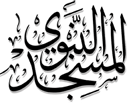 المسجد النبوي